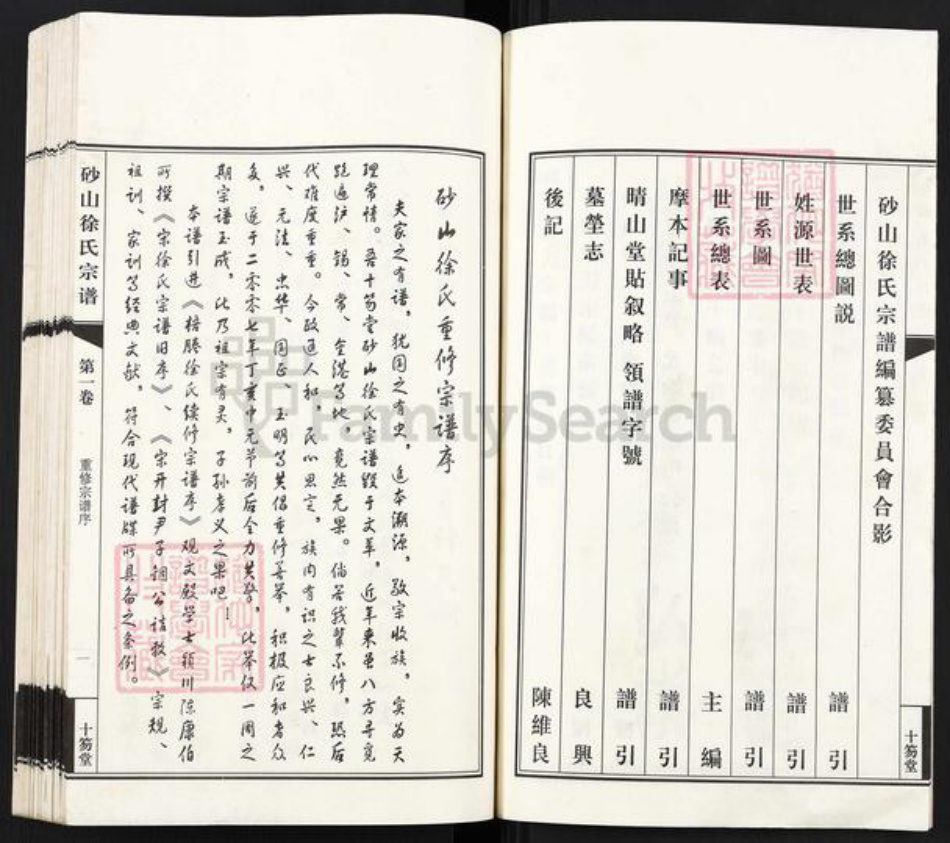 砂山徐氏宗譜編纂委員會合影
世系總圖説 譜引
姓源世表 譜引
世系圖 譜引
世系總表 主編
摩本記事 譜引
晴山堂貼叙略 領譜字號 譜引
墓塋志 良興
後記 陳維良
十笏堂
砂山徐氏重修宗譜序
夫家之有譜，犹国之有史，追本溯源，敬宗收族，实为天
理常情。吾十笏堂砂山徐氏宗谱毁于文革，近年来虽八方寻觅
跑遍沪、锡、常、金港等地，竟然无果。倘若我辈不修，恐后
代难度重重。今政通人和，民心思定，族内有识之士良兴、仁
兴、元法、忠华、国正、玉明等共倡重修善举，积极应和者众
多，遂于二零零七年丁亥中元节前后全力共擎，此举仅一周之
期宗谱玉成，此乃祖宗有灵，子孙孝义之果吧！
本谱引进《梧塍徐氏续修宗谱序》观文殿学士颍川陈康伯
所撰《宋徐氏宗谱旧序》、《宋开封尹子锢公诰敕》宗规、
祖训、家训等经典文献，符合现代谱牒所具备之条例。
砂山徐氏宗谱
第一卷
重修宗谱序
一
十笏堂
FamilySearch